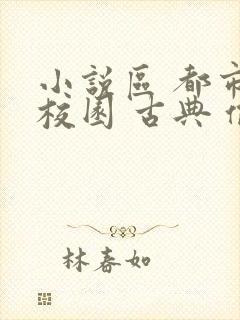 小說區 都市
校園 古典
林春如